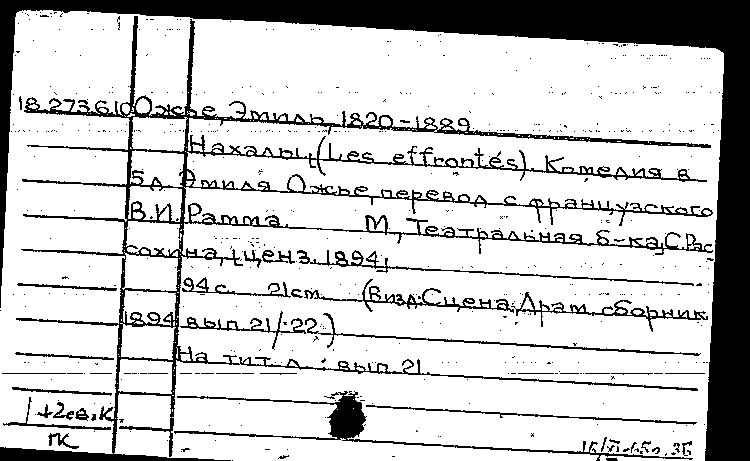 18.273.610 Ожье, Эмиль, 1820-1889
Нахалы, (Les effrontés). Комедия в
5 д. Эмиля Ожье, перевод с французского
В.И. Рамма. М., Театральная б-ка, С. Рас
сохина, ценз. 1894,
94 с. 21 см. (В изд: Сцена, Драм. сборник
1894 вып 21/-22)
На тит. л : вып. 21.
1+2ев.к.
ГК